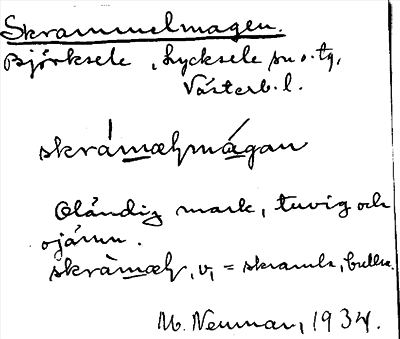 Skrammelmagen.
Björksele, Lycksele sn o. tg,
Västerb. l.
skrámælmágan
Oländig mark, tuvig och
ojämn.
skràmæl, v, = skramla, bullra.
M. Neuman, 1934.